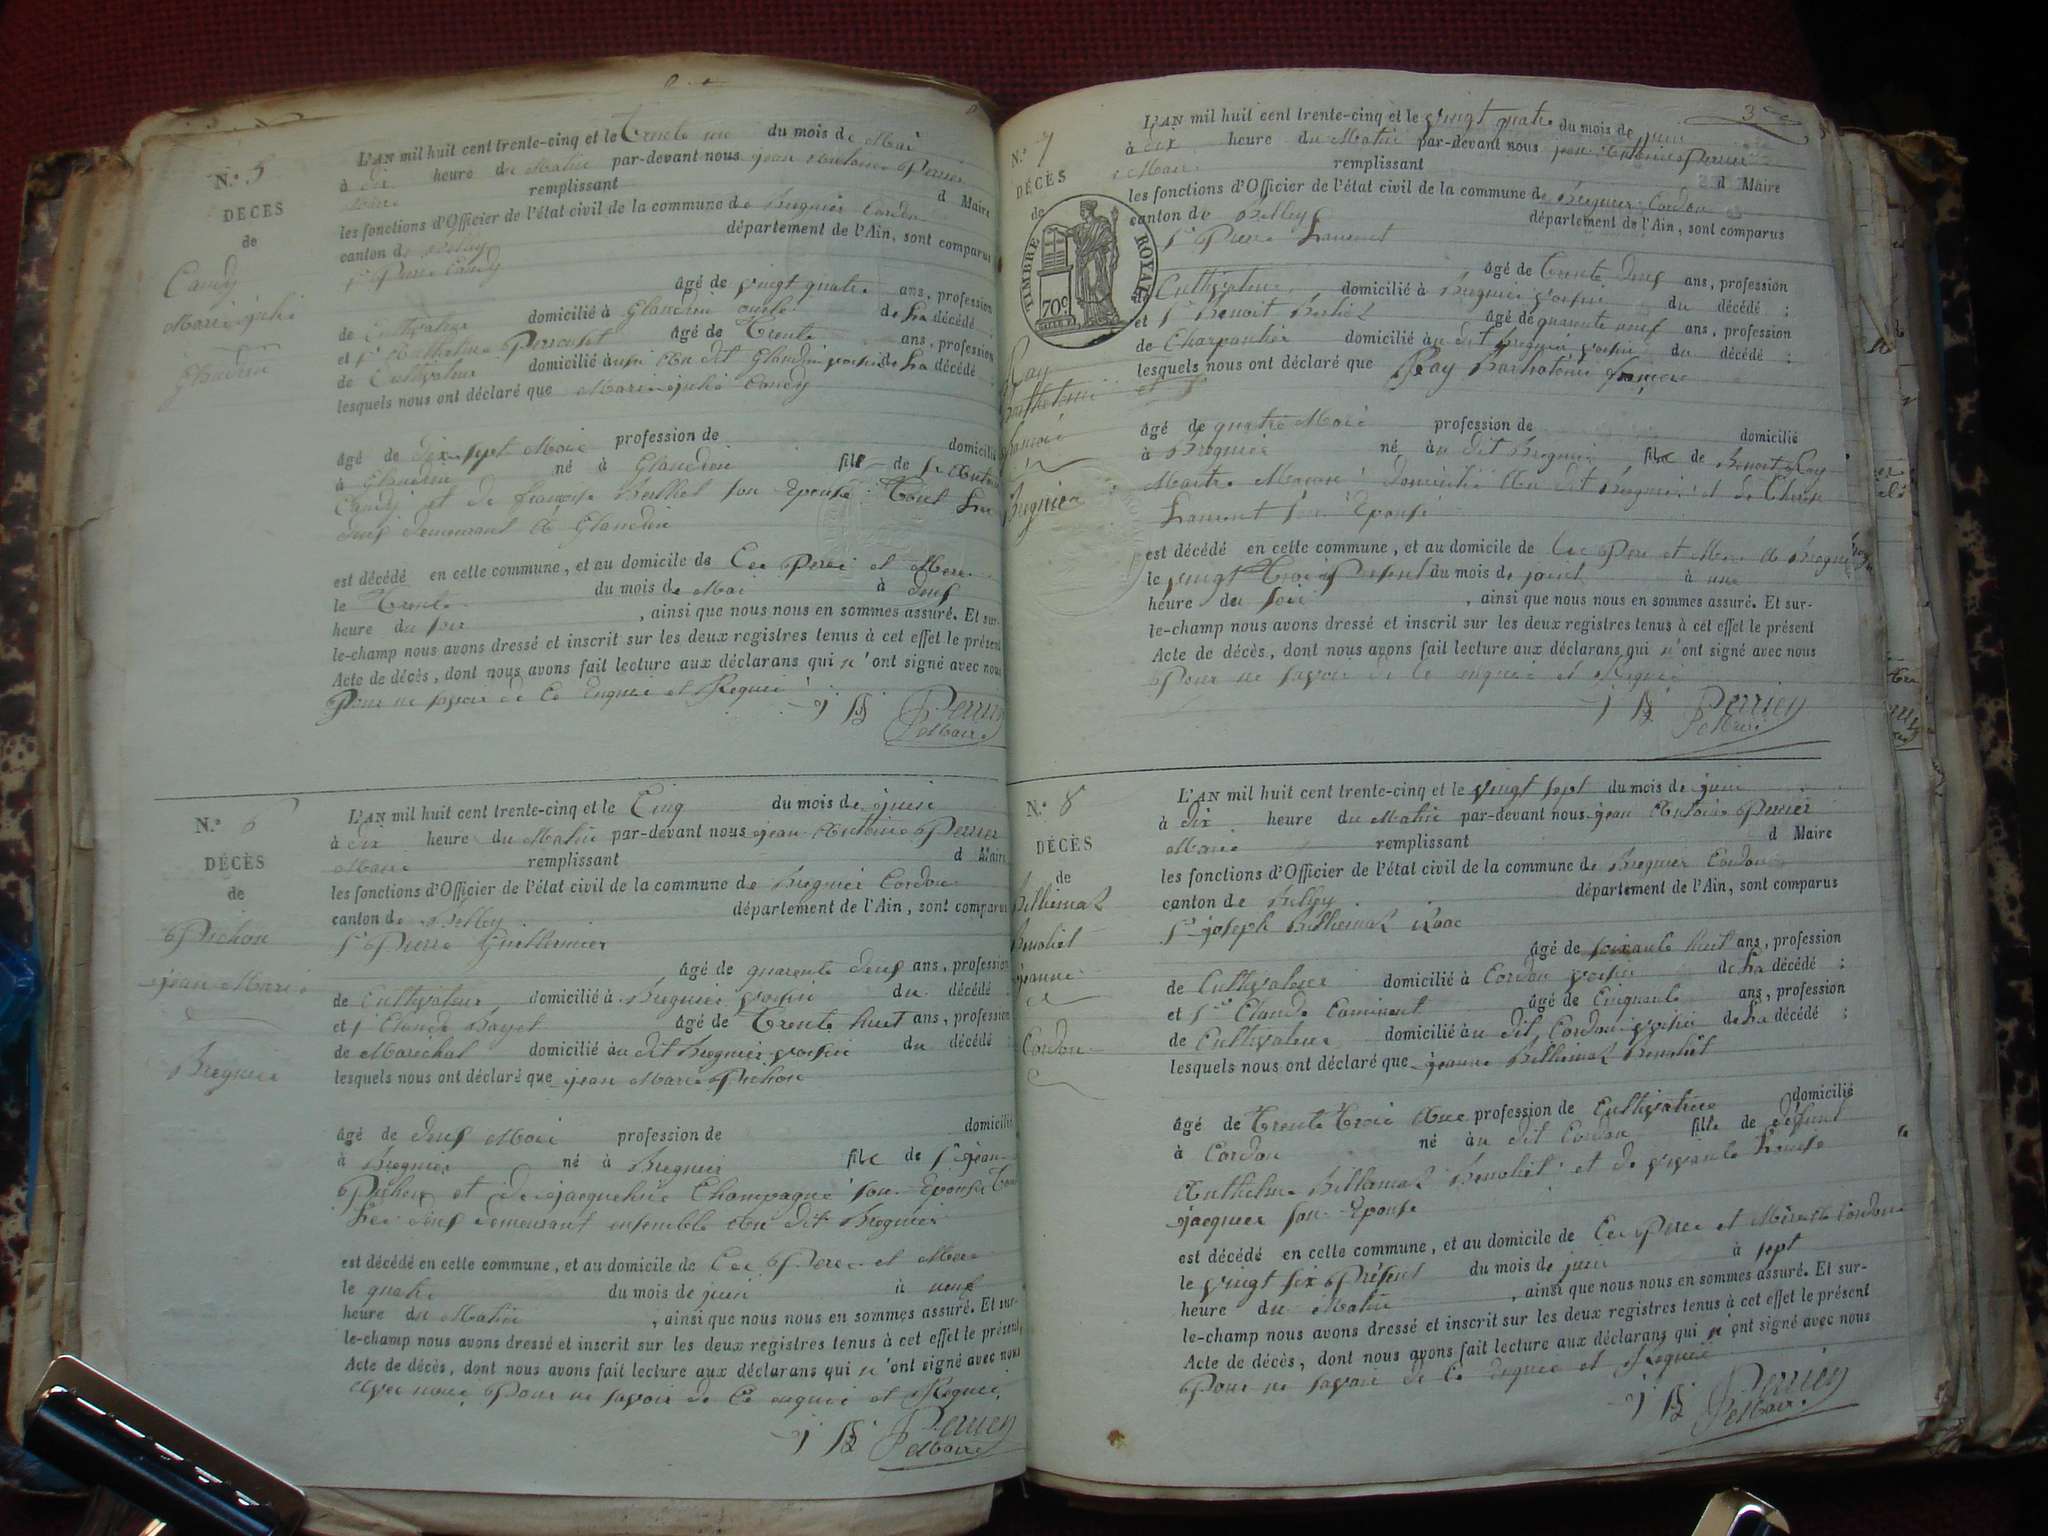 N.º 5
DÉCÈS
de
Candy
Marie julie
Glandieu
L'AN mil huit cent trente-cinq et le Trente un du mois de Mai
à dix heure du Matin par-devant nous jean Antoine Perrier
Maire remplissant d Maire
les fonctions d'Officier de l'état civil de la commune de Bregnier Cordon
canton de Belley département de l'Ain, sont comparus
Sr Pierre Candy
âgé de vingt quatre ans, profession
de Cultivateur domicilié à Glandieu oncle de La décédé
et Sr Anthelme âgé de Trente ans, profession
de Cultivateur domicilié au dit Glandieu voisin de La décédé ;
lesquels nous ont déclaré que Marie julie Candy
âgé de dix sept Moi profession de domicilié
à Glandieu né à Glandieu fille de Sr Antoine
Candy et de françoise Berthet son Epouse Tout Les
deuf demeurant à Glandieu
est décédé en cette commune, et au domicile de Ces Pere et Mere
le Trente du mois de Mai à deuf
heure du soir , ainsi que nous nous en sommes assuré. Et sur-
le-champ nous avons dressé et inscrit sur les deux registres tenus à cet effet le présent
Acte de décès, dont nous avons fait lecture aux déclarans qui n'ont signé avec nous
Pour ne savoir de Ce enquis et Requi
Perrier
Maire
N.º 6
DÉCÈS
de
Pichon
jean Marie
Bregnier
L'AN mil huit cent trente-cinq et le Cinq du mois de juin
à dix heure du Matin par-devant nous jean Antoine Perrier
Maire remplissant d Maire
les fonctions d'Officier de l'état civil de la commune de Bregnier Cordon
canton de Belley département de l'Ain, sont comparus
Sr Pierre Guillermier
âgé de quarente deuf ans, profession
de Cultivateur domicilié à Bregnier voisin du décédé
et Sr Claude Bayet âgé de Trente huit ans, profession
de Marechal domicilié au dit Bregnier voisin du décédé
lesquels nous ont déclaré que jean Marie Pichon
âgé de deuf Moi profession de domicilié
à Bregnier né à Bregnier fils de Sr jean
Pichon et de jacqueline Champagne son Epouse Tout
Les deuf demeurant ensemble au dit Bregnier
est décédé en cette commune, et au domicile de Ces Pere et Mere
le quatre du mois de juin à neuf
heure du Matin , ainsi que nous nous en sommes assuré. Et sur-
le-champ nous avons dressé et inscrit sur les deux registres tenus à cet effet le présent
Acte de décès, dont nous avons fait lecture aux déclarans qui n'ont signé avec nous
avec nous Pour ne savoir de Ce enquis et Requi
Perrier
Maire
3
N.º 7
DÉCÈS
de
TIMBRE ROYAL
70c
Ray
Barthelemi
françois
Bregnier
L'AN mil huit cent trente-cinq et le vingt quatre du mois de juin
à dix heure du Matin par-devant nous jean Antoine Perrier
Maire remplissant d Maire
les fonctions d'Officier de l'état civil de la commune de Bregnier Cordon
canton de Belley département de l'Ain, sont comparus
Sr Pierre Laurent
âgé de Trente deuf ans, profession
de Cultivateur domicilié à Bregnier voisin du décédé ;
et Sr Benoit Berlioz âgé de quarente neuf ans, profession
de Charpentier domicilié au dit Bregnier voisin du décédé :
lesquels nous ont déclaré que Ray Barthelemi françois
âgé de quatre Moi profession de domicilié
à Bregnier né au dit Bregnier fils de Benoit Ray
Maitre Maçon domicilié Au dit Bregnier et de
Laurent son Epouse
est décédé en cette commune, et au domicile de Ces Pere et Mere à Bregnier
le vingt Trois Présent du mois de juin à une
heure du soir , ainsi que nous nous en sommes assuré. Et sur-
le-champ nous avons dressé et inscrit sur les deux registres tenus à cet effet le présent
Acte de décès, dont nous avons fait lecture aux déclarans qui n'ont signé avec nous
Pour ne savoir de Ce enquis et Requi
Perrier
Maire
N.º 8
DÉCÈS
de
Billiemaz
Benoliet
jeanne
Cordon
L'AN mil huit cent trente-cinq et le vingt sept du mois de juin
à dix heure du Matin par-devant nous jean Antoine Perrier
Maire remplissant d Maire
les fonctions d'Officier de l'état civil de la commune de Bregnier Cordon
canton de Belley département de l'Ain, sont comparus
Sr joseph Billiemaz izaac
âgé de soixante huit ans, profession
de Cultivateur domicilié à Cordon voisin de La décédé ;
et Sr Claude âgé de Cinquante ans, profession
de Cultivateur domicilié au dit Cordon voisin de La décédé ;
lesquels nous ont déclaré que jeanne Billiemaz Benoliet
âgé de Trente Troi Ans profession de Cultivatrice domicilié
à Cordon né au dit Cordon fille de defunt
Anthelme Billiemaz Benoliet et de vivante
jacquier son Epouse
est décédé en cette commune, et au domicile de Ces Pere et Mere à Cordon
le vingt six Présent du mois de juin à sept
heure du Matin , ainsi que nous nous en sommes assuré. Et sur-
le-champ nous avons dressé et inscrit sur les deux registres tenus à cet effet le présent
Acte de décès, dont nous avons fait lecture aux déclarans qui n'ont signé avec nous
Pour ne savoir de Ce enquis et Requi
Perrier
Maire